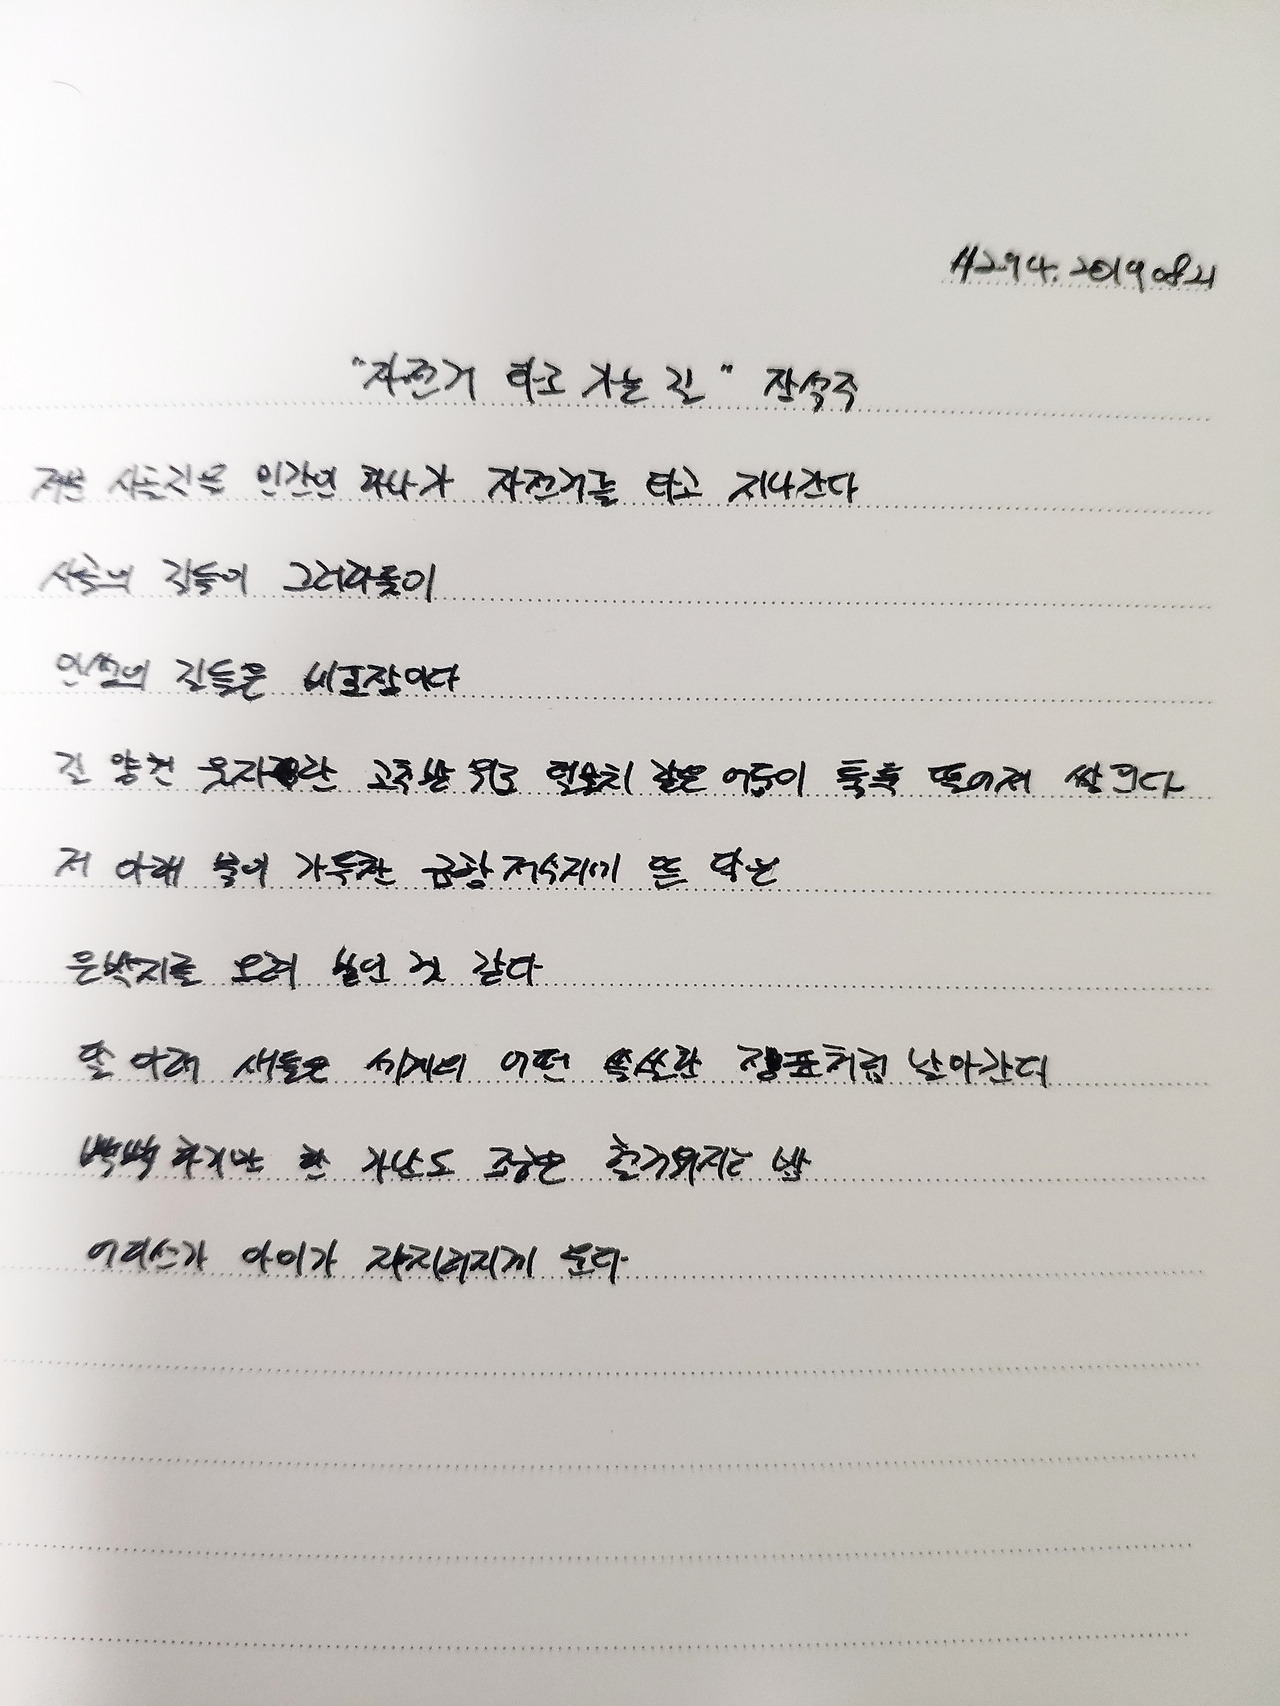 #294. 20190821
"자전거 타고 가는 길" 장석주
저녁 시골길을 인간의 하나가 자전거를 타고 지나간다
시골의 길들이 그러하듯이
인생의 길들은 비포장이다
길 양켠 웃자란 고추밭 위로 헝겊치 같은 어둠이 툭툭 떨어져 쌓인다
저 아래 물이 가득찬 금광저수지에 뜬 달은
은박지를 오려 붙인 것 같다
달 아래 새들은 세계의 어떤 쓸쓸한 징표처럼 날아간다
빽빽하지만 한 가난도 조금은 헐거워지는 밤
어디선가 아이가 자지러지게 운다